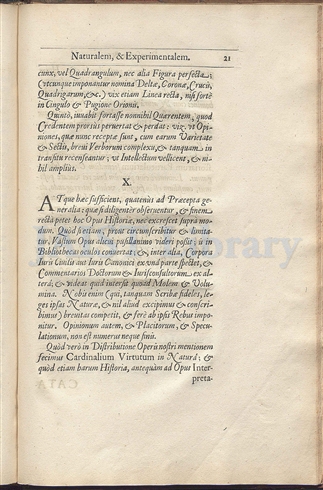 Naturalem, & Experimentalem. 21
cunx, vel Quadrangulum, nec alia Figura perfecta;
(vtcunque imponantur nomina Deltæ, Coronæ, Crucis,
Quadrigarum, &c.) vix etiam Linea recta, nisi fortè
in Cingulo & Pugione Orionis.
Quintò, iuuabit fortasse nonnihil Quærentem, quod
Credentem prorsus peruertat & perdat: viz. vt Opi-
niones, quæ nunc receptæ sunt, cum earum Varietate
& Sectis, breui Verborum complexu, & tanquam in
transitu recenseantur; vt Intellectum vellicent, & ni-
hil ampliùs.
X.
ATque hæc sufficient, quatenùs ad Præcepta ge-
neralia: quæ si diligenter obseruentur, & finem
recta petet hoc Opus Historiæ, nec excrescet supra mo-
dum. Quòd si etiam, prout circumscribitur & limita-
tur, Vastum Opus alicui pusillanimo videri possit; in
Bibliothecas oculos conuertat; & inter alia, Corpora
Iuris Ciuilis aut Iuris Canonici ex vna parte spectet, &
Commentarios Doctorum & Iurisconsultorum ex al-
terâ; & videat quid intersit quoad Molem & Volu-
mina. Nobis enim (qui, tanquam Scribæ fideles, le-
ges ipsas Naturæ, & nil aliud excipimus & conscri-
bimus) breuitas competit, & ferè ab ipsis Rebus impo-
nitur. Opinionum autem, & Placitorum, & Specu-
lationum, non est numerus neque finis.
Quòd verò in Distributione Operis nostri mentionem
fecimus Cardinalium Virtutum in Naturâ; &
quòd etiam harum Historia, antequàm ad Opus Inter-
preta-